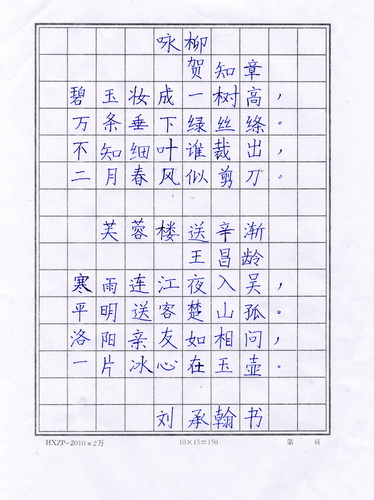 咏柳
贺知章
碧玉妆成一树高，
万条垂下绿丝绦。
不知细叶谁裁出，
二月春风似剪刀。
芙蓉楼送辛渐
王昌龄
寒雨连江夜入吴，
平明送客楚山孤。
洛阳亲友如相问，
一片冰心在玉壶。
刘承翰书
HXZP-2010×2万 10×15=150 第 页